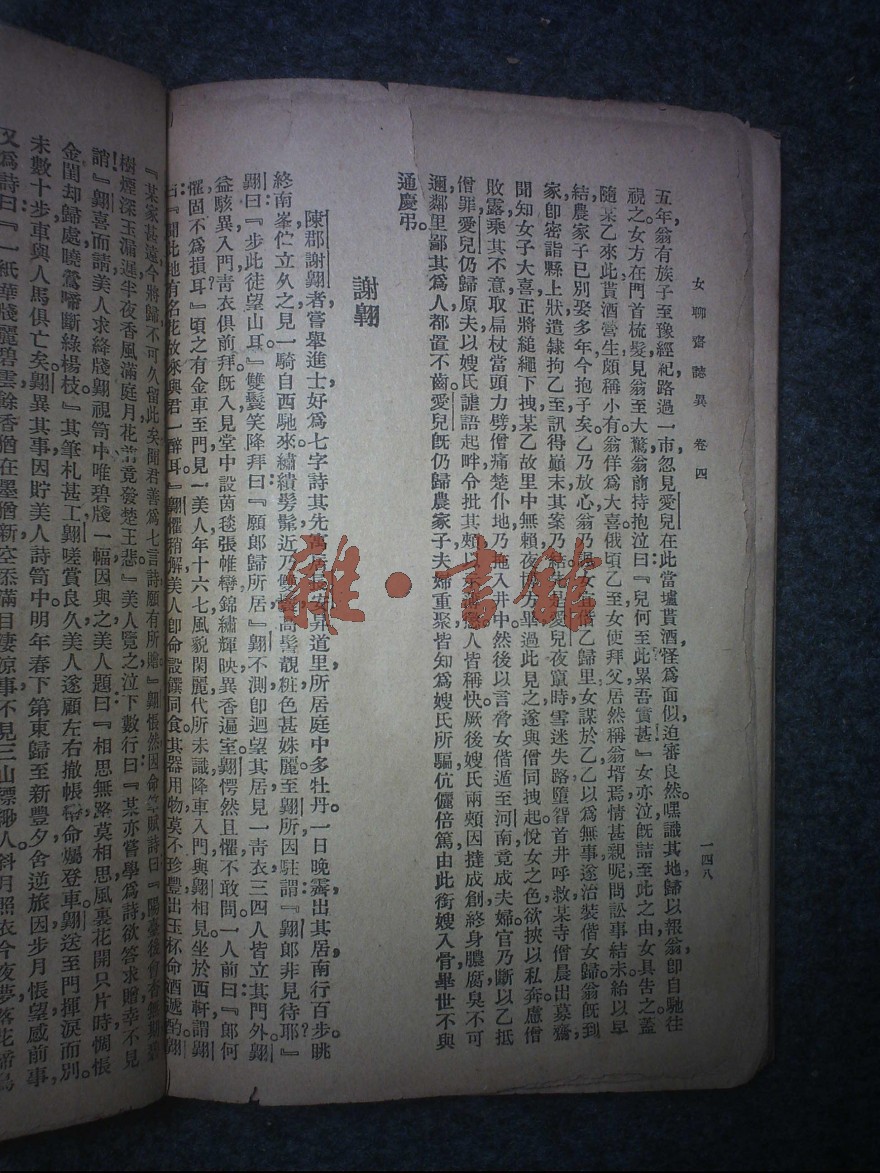 女聊齋誌異 卷四
一四八
五年,翁有族子至豫,經紀路過一市,忽見愛兒在此當壚貰酒,怪爲面似,迫審良然。嘿識其地,歸以報翁,卽自馳往
視之。女方在門首梳髮,見翁至大驚,翁前持抱泣曰:『兒何至此,累吾實甚。』女亦泣,旣詰至此之由,女具告之,蓋
隨某乙來此,貰酒營生,頗稱小有。翁佯爲大喜,俄頃乙至,女使拜父,居然稱翁壻焉,情甚親昵,問訟事結未,紿以早
結,農家子已別娶多年,今抱子矣。乙乃放心,翁乃
歸里,女謀於乙,乙以爲無事,遂治裝偕女歸,翁旣到
家,卽密詣縣上狀,遣隸拘乙至,訊得顚末,其案乃
愛兒夜竄時,雪迷失路,墮眢井呼救,某寺僧晨出募齋,
聞知女子大喜,正將縋繩下拽,某乙故里中無賴,夜
畢過此見之,遂與僧同拽起,悅女之色,欲挾以私奔,慮僧
敗露,乘其不意,取扁杖當頭力劈,僧痛楚仆地,乃拖入井中,然後以言脅女偕遁至河南,竟成夫婦,官乃斷以乙抵
僧罪,愛兒仍歸原夫,以嫂氏譫語起衅,令批其頰以
人皆稱快。厥後嫂氏兩頰因撻成創,終身膿腐臭不可
邇,鄰里鄙其爲人,都置不齒,愛兒旣仍歸農家子,夫婦重聚,皆知爲嫂氏所騙,伉儷倍篤,由此銜嫂入骨,畢世不與
通慶弔。
謝翺
陳郡謝翺者,嘗舉進士,好爲七字詩,其先寓居長安昇道里,所居庭中多牡丹。一日晚霽,出其居,南行百步,眺
終南峯,佇立久之,見一騎自西馳來,繡繢髣髴,近乃雙鬟高髻靚粧,色甚姝麗,至翺所,因駐謂:『翺郎非見待耶』
翺曰:『步此徒望山耳。』雙鬟笑降拜曰:『願郎歸所居。』翺不測,卽迴望其居,見一靑衣三四人,皆立其門外,翺
益駭異,入門,靑衣俱前拜,旣入,見堂中設茵毯,張帷帟,錦繡輝映,異香遍室,翺愕然且懼,不敢問。一人前曰:『郎何
懼,固不爲損耳。』頃之,有金車至門,見一美人,年十六七,風貌閑麗,代所未識,降車入門,與翺相見,坐於西軒,謂翺
曰:『聞此地有名花,故來與君一醉耳。』翺懼稍解,美人卽命設饌同食,其器用物,莫不珍豐,出玉杯,命酒遞酌,翺
『某家甚遠,今將歸,不可久留此矣,聞君善爲七言詩,願有所贈。』翺悵然,因命筆賦詩曰:『陽臺後會有無期,碧
樹煙深玉漏遲,半夜香風滿庭月,花前竟發楚王悲。』美人覽之,泣下數行,曰:『某亦嘗學爲詩,欲答來贈,幸不見
誚。』翺喜而請,美人求絳牋,翺視笥中,唯碧牋一幅,因與之,美人題曰:『相思無路莫相思,風裏花開只片時,惆悵
金閨却歸處,曉鶯啼斷綠楊枝。』其筆札甚工,翺嗟賞良久,美人遂顧左右撤帳帟,命燭登車,翺送至門,揮淚而別。
未數十步,車與人馬俱亡矣。翺異其事,因貯美人詩笥中,明年春,下第東歸,至新豐,夕舍逆旅,因步月悵望,感前事,
又爲詩曰:『一紙華牋麗碧雲,餘香猶在墨猶新,空添滿目凄涼事,不見三山縹緲人,斜月照衣今夜夢,落花啼鳥
雜·書館